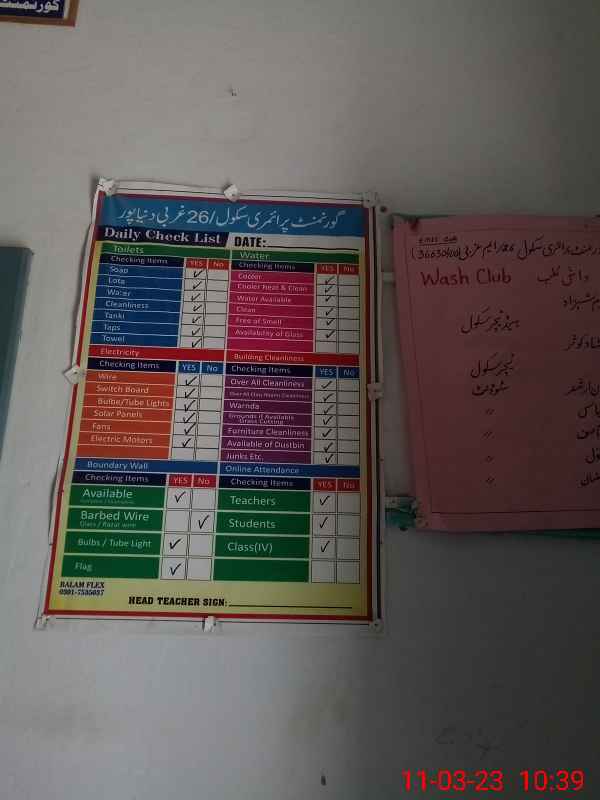 گورنمنٹ
گورنمنٹ پرائمری سکول /26 غربی دنیاپور
Daily Check List DATE:
Toilets
Checking Items YES No
Soap
Lota
Water
Cleanliness
Tanki
Taps
Towel
Water
Checking Items YES No
Cooler
Cooler Neat & Clean
Water Available
Clean
Free of Smell
Availability of Glass
Electricity
Checking Items YES No
Wire
Switch Board
Bulbe/Tube Lights
Solar Panels
Fans
Electric Motors
Building Cleanliness
Checking Items YES No
Over All Cleanliness
Over All Class Rooms Cleanliness
Warnda
Grounds if Available
Grass Cutting
Furniture Cleanliness
Available of Dustbin
Junks Etc.
Boundary Wall
Checking Items YES No
Available
Barbed Wire
Glass / Razar wire
Bulbs / Tube Light
Flag
Online Attendance
Checking Items YES No
Teachers
Students
Class(IV)
BALAM FLEX
0301-7535037
HEAD TEACHER SIGN:
Wash Club
ہیڈ ٹیچر سکول
ٹیچر سکول
سٹوڈنٹ
〃
〃
〃
〃
11-03-23 10:39